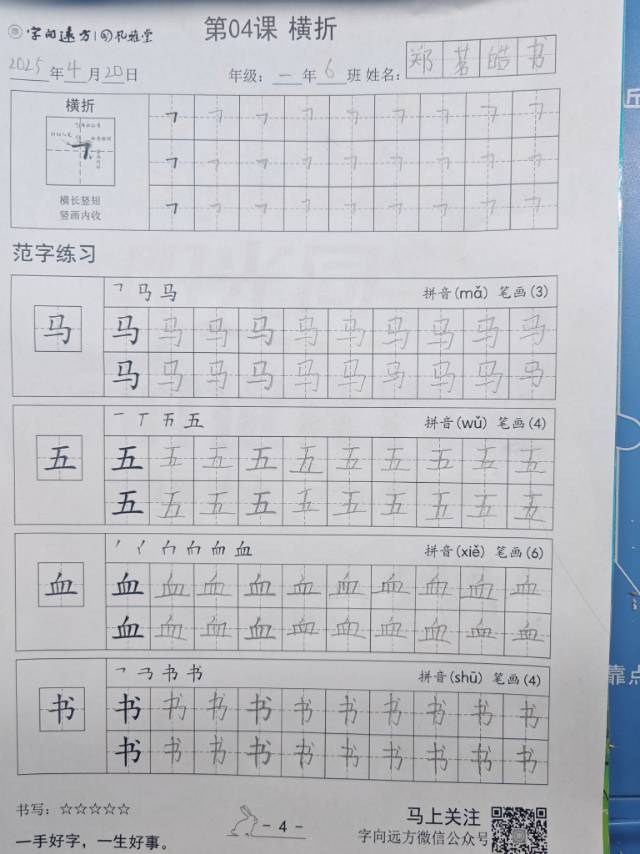 字向远方 | 孔雅堂
第04课 横折
2025年4月20日 年级：一年6班 姓名：郑茗皓书
横折
横长竖短
竖画内收
范字练习
马 拼音(mǎ) 笔画(3)
马 马 马 马 马 马 马 马 马 马 马
马 马 马 马 马 马 马 马 马 马
五 拼音(wǔ) 笔画(4)
五 五 五 五 五 五 五 五 五 五 五
五 五 五 五 五 五 五 五 五 五
血 拼音(xiě) 笔画(6)
血 血 血 血 血 血 血 血 血 血 血
血 血 血 血 血 血 血 血 血 血
书 拼音(shū) 笔画(4)
书 书 书 书 书 书 书 书 书 书 书
书 书 书 书 书 书 书 书 书 书
书写：☆☆☆☆☆
一手好字，一生好事。
- 4 -
马上关注
字向远方微信公众号
靠点